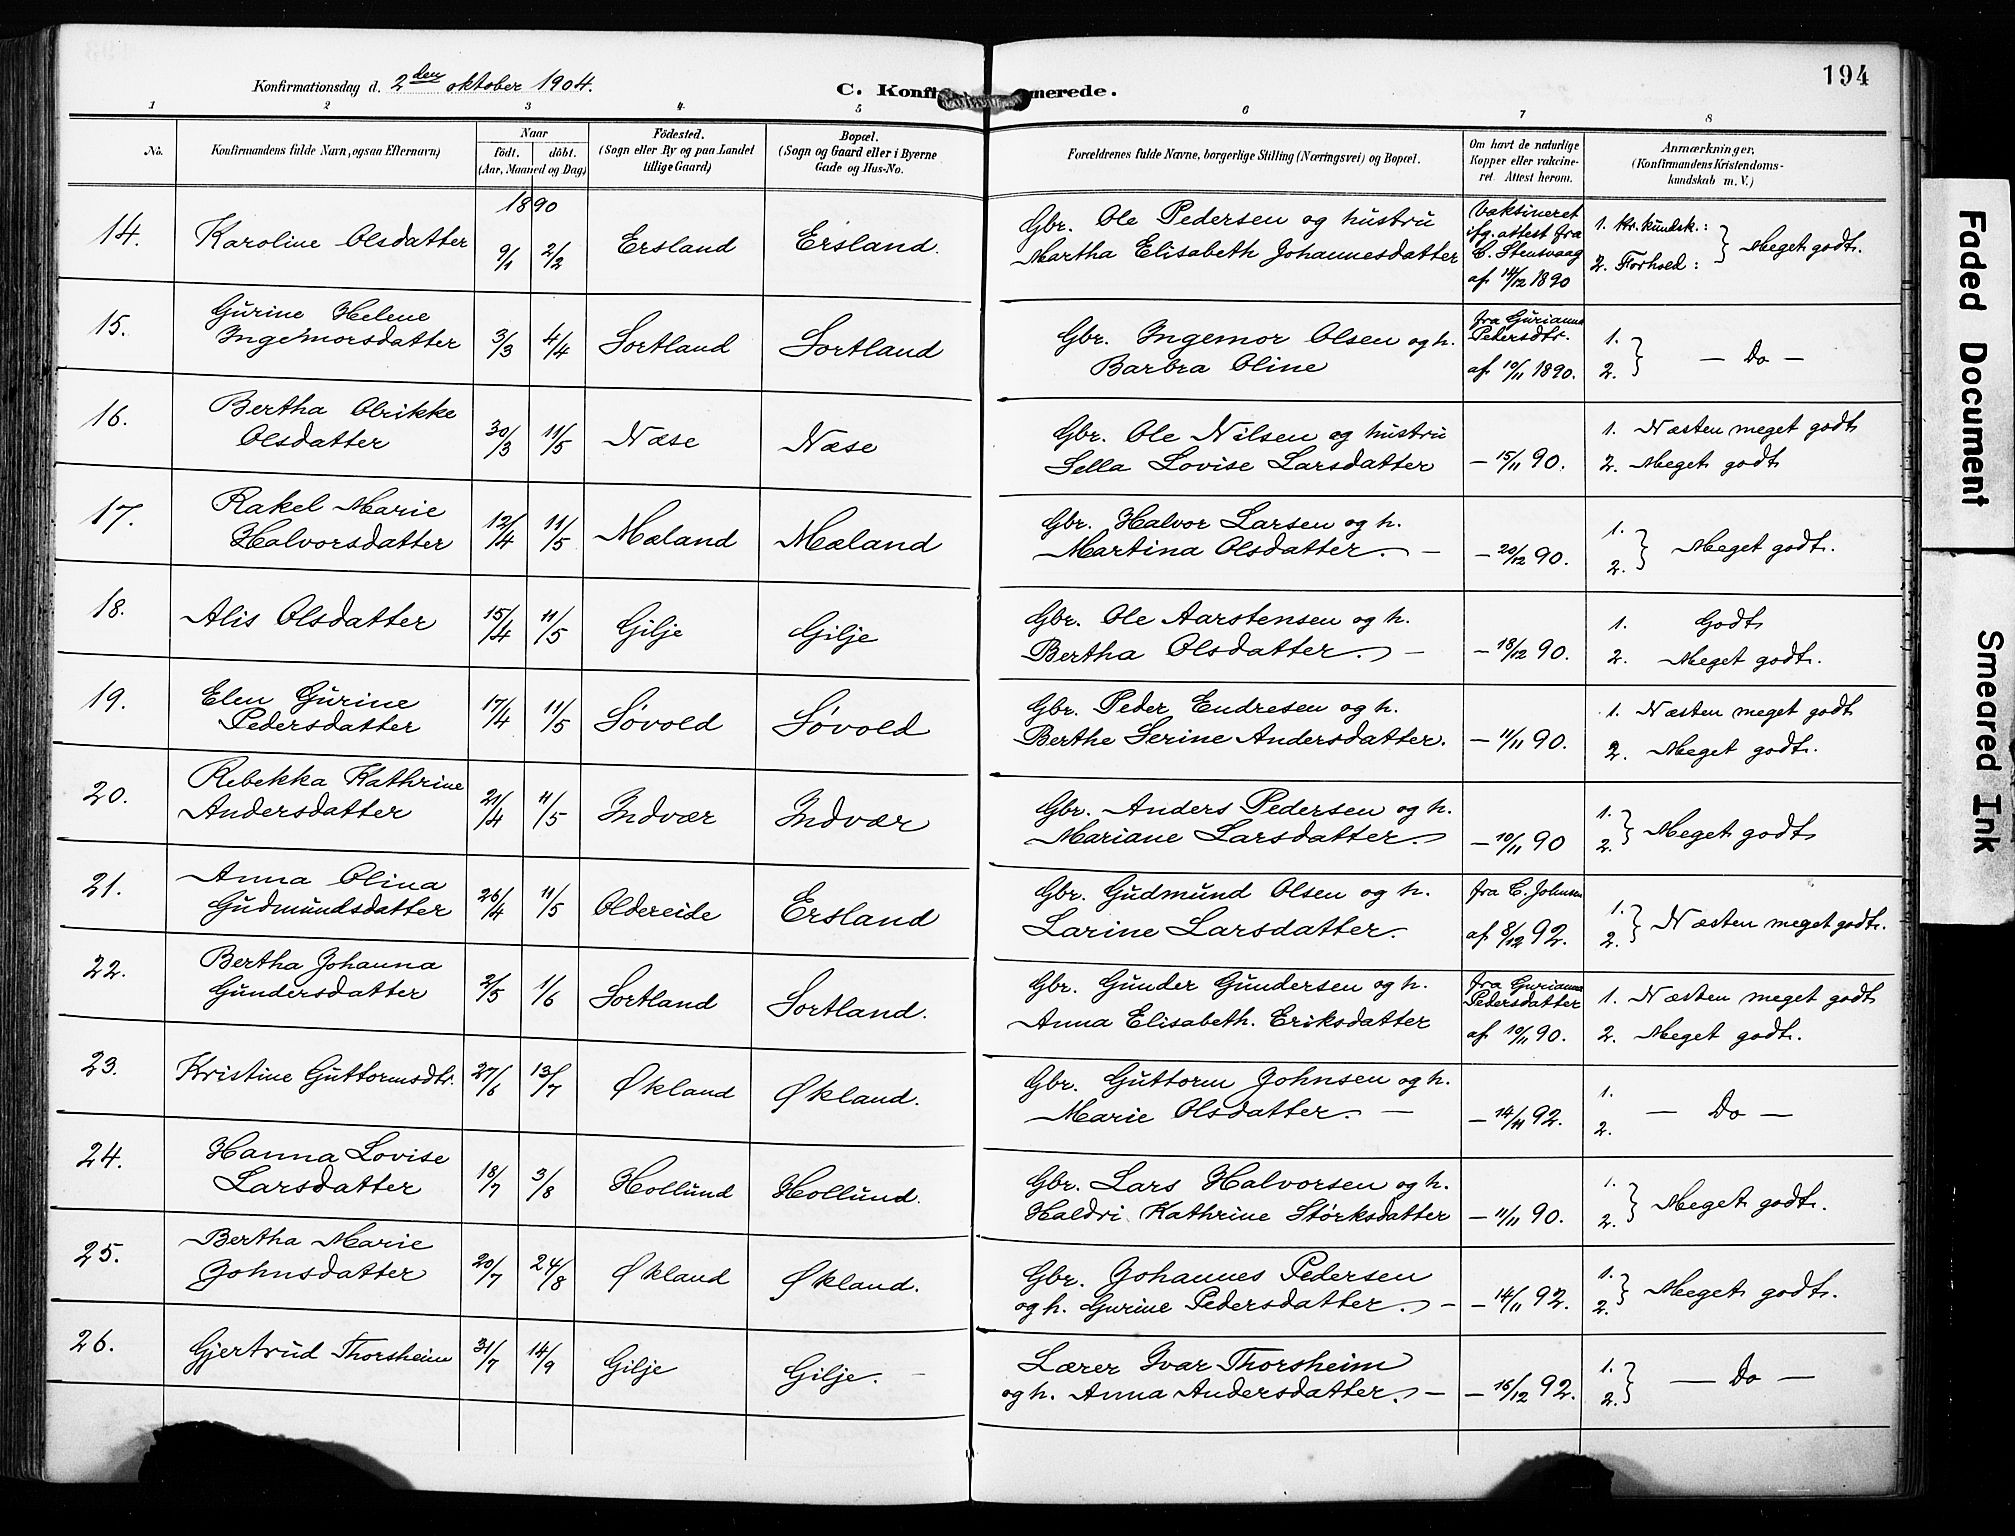 194
Konfirmationsdag d. 2den oktober 1904.
C. Konfi merede.
1 2 3 4 5 6 7 8
No.
Konfirmandens fulde Navn, ogsaa Efternavn)
Naar
födt. döbt.
(Aar, Maaned og Dag)
Födested.
(Sogn eller By og paa Landet
tillige Gaard)
Bopæl.
(Sogn og Gaard eller i Byerne
Gade og Hus-No.
Forældrenes fulde Navne, borgerlige Stilling (Næringsvei) og Bopæl.
Om havt de naturlige
Kopper eller vakcine-
ret. Attest herom.
Anmærkninger,
(Konfirmandens Kristendoms-
kundskab m. V.)
1890
14. Karoline Olsdatter 9/1 2/2 Ersland Ersland.
Gbr. Ole Pedersen og hustru
Martha Elisabeth Johannesdatter
Vaksineret
ifg. attest fra
C. Stensvaag
af 14/12 1890
1. Kr. kundsk.:
2. Forhold: } Meget godt.
15. Gurine Helene
Ingemorsdatter 3/3 4/4 Sortland Sortland
Gbr. Ingemor Olsen og h.
Barbra Oline
fra Gurianna
Pedersdtr.
af 10/11 1890.
1.
2. } — Do —
16. Bertha Olrikke
Olsdatter 30/3 11/5 Næse Næse
Gbr. Ole Nilsen og hustru
Sella Lovise Larsdatter — 15/11 90.
1. Næsten meget godt
2. Meget godt
17. Rakel Marie
Halvorsdatter 12/4 11/5 Mæland Mæland
Gbr. Halvor Larsen og h.
Martina Olsdatter. — — 20/12 90.
1.
2. } Meget godt.
18. Alis Olsdatter 15/4 11/5 Gilje Gilje
Gbr. Ole Aarstensen og h.
Bertha Olsdatter. — — 18/12 90.
1. Godt
2. Meget godt.
19. Elen Gurine
Pedersdatter 17/4 11/5 Søvold Søvold
Gbr. Peder Endresen og h.
Berthe Serine Andersdatter. — 11/11 90.
1. Næsten meget godt
2. Meget godt.
20. Rebekka Kathrine
Andersdatter 21/4 11/5 Indvær Indvær
Gbr. Anders Pedersen og h.
Mariane Larsdatter. — 10/11 90
1.
2. } Meget godt
21. Anna Olina
Gudmundsdatter 26/4 11/5 Oldereide Ersland
Gbr. Gudmund Olsen og h.
Larine Larsdatter.
fra C. Johnsen
af 8/12 92.
1.
2. } Næsten meget godt.
22. Bertha Johanna
Gundersdatter 2/5 1/6 Sortland Sortland.
Gbr. Gunder Gundersen og h.
Anna Elisabeth. Eriksdatter
fra Gurianna
Pedersdatter
af 10/11 90.
1. Næsten meget godt
2. Meget godt.
23. Kristine Guttormsdtr. 27/6 13/7 Økland Økland.
Gbr. Guttorm Johnsen og h.
Marie Olsdatter. — — 14/11 92.
1.
2. — Do —
24. Hanna Lovise
Larsdatter 18/7 3/8 Hollund Hollund.
Gbr. Lars Halvorsen og h.
Haldri Kathrine Størksdatter — 11/11 90.
1.
2. } Meget godt.
25. Bertha Marie
Johnsdatter 20/7 24/8 Økland Økland.
Gbr. Johannes Pedersen
og h. Gurine Pedersdatter. — — 14/11 92.
1.
2. } Meget godt.
26. Gjertrud Thorsheim 31/7 14/9 Gilje Gilje. —
Lærer Ivar Thorsheim
og h. Anna Andersdatter. — — 16/12 92.
1.
2. } — Do —
Faded Document
Smeared Ink